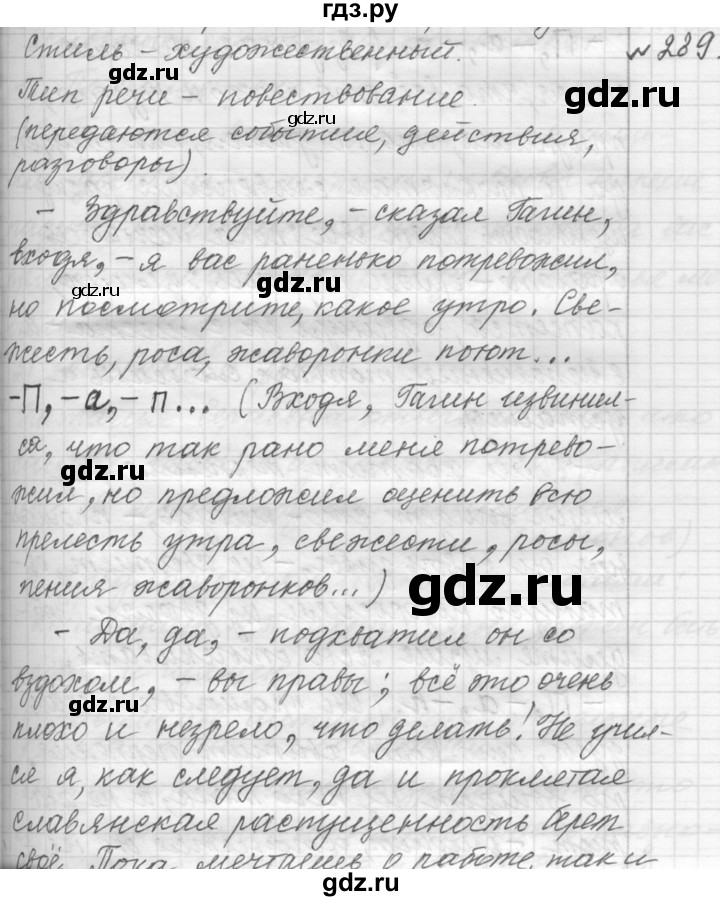 гдз.ру
Стиль – художественный. №289.
gdz.ru
gdz.ru
Тип речи – повествование.
(передаются события, действия,
gdz.ru
разговоры).
– Здравствуйте, – сказал Гагин,
входя, – я вас раненько потревожил,
gdz.ru
gdz.ru
но посмотрите, какое утро. Све-
жесть, роса, жаворонки поют...
gdz.ru
-П, – а, – п... (Входя, Гагин извинил-
ся, что так рано меня потрево-
gdz.ru
жил, но предложил оценить всю
прелесть утра, свежести, росы,
gdz.ru
пения жаворонков...)
– Да, да, – подхватил он со
gdz.ru
вздохом, – вы правы; всё это очень
плохо и незрело, что делать! Не учил-
gdz.ru
ся я, как следует, да и проклятая
славянская распущенность берет
gdz.ru
своё. Пока мечтаешь о работе, так и
gdz.ru